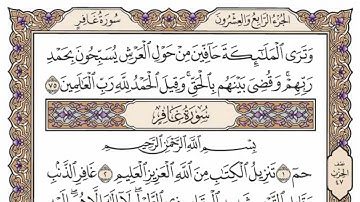 سُورَةُ غَافِرٍ الجُزْءُ الرَّابِعُ وَالعِشْرُونَ
وَتَرَى ٱلْمَلَٰٓئِكَةَ حَآفِّينَ مِنْ حَوْلِ ٱلْعَرْشِ يُسَبِّحُونَ بِحَمْدِ
رَبِّهِمْ ۖ وَقُضِىَ بَيْنَهُم بِٱلْحَقِّ ۚ وَقِيلَ ٱلْحَمْدُ لِلَّهِ رَبِّ ٱلْعَٰلَمِينَ ٧٥
سُورَةُ غَافِرٍ
بِسْمِ ٱللَّهِ ٱلرَّحْمَٰنِ ٱلرَّحِيمِ
حمٓ ١ تَنزِيلُ ٱلْكِتَٰبِ مِنَ ٱللَّهِ ٱلْعَزِيزِ ٱلْعَلِيمِ ٢ غَافِرِ ٱلذَّنۢبِ
نصف
الحزب
٤٧